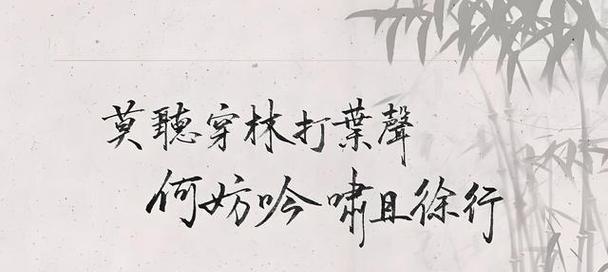 莫聽穿林打葉聲
何妨吟嘯且徐行